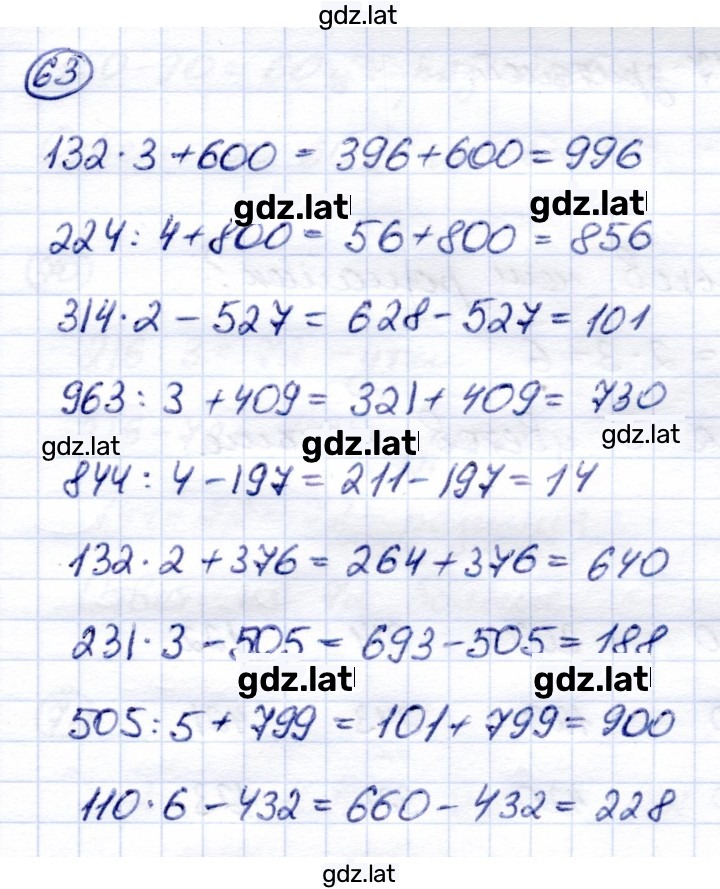 gdz.lat
63
132·3+600 = 396+600=996
gdz.lat gdz.lat
224:4+800= 56+800 = 856
314·2-527= 628-527=101
963:3+409= 321+409= 730
gdz.lat gdz.lat gdz.lat
844:4-197=211-197=14
132·2+376=264+376=640
231·3-505= 693-505=188
gdz.lat gdz.lat
505:5+799=101+799=900
110·6-432=660-432=228
gdz.lat